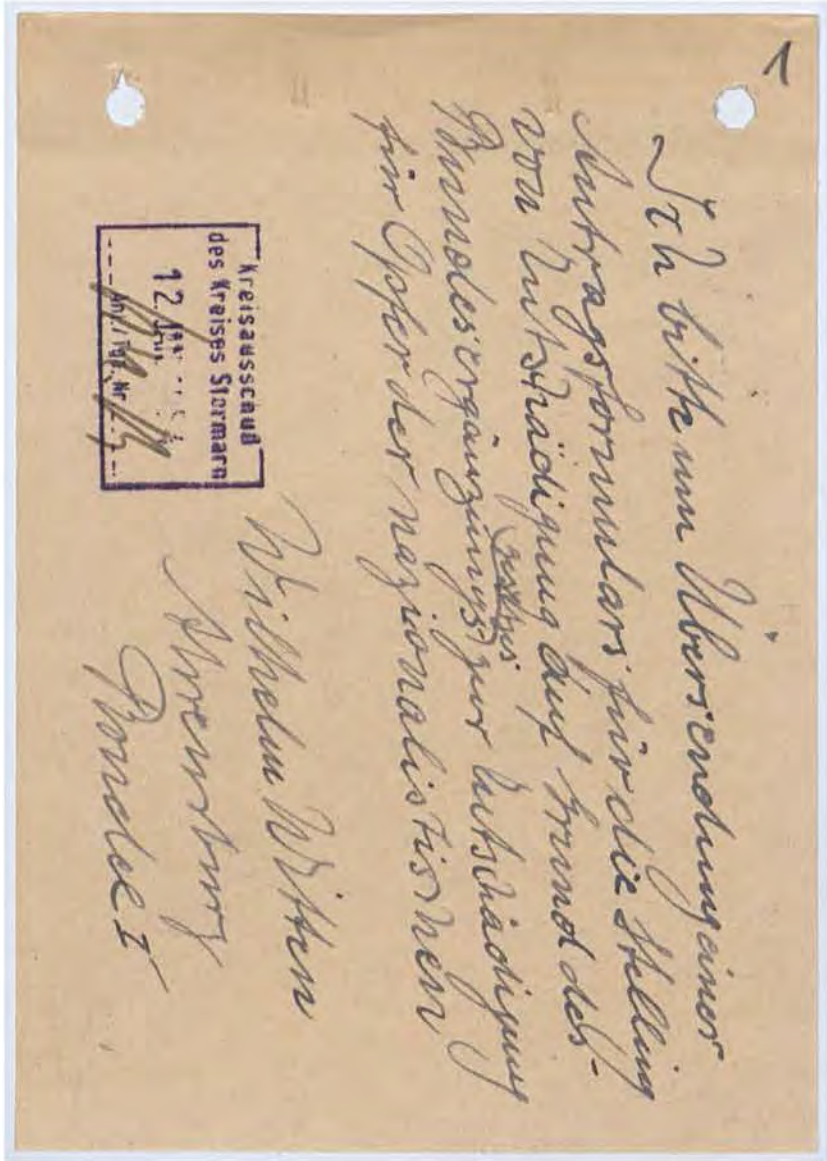 1
Ich bitte um Übersendung einer
Antragsformulars für die Stellung
von Entschädigung auf Grund des-
Bundesergänzungs gesetzes zur Entschädigung
für Opfer der nazionalistischen
Wilhelm Witten
Ahrensburg
Rondel I
Kreisausschuß
des Kreises Stormarn
12. Jan.
Nr.